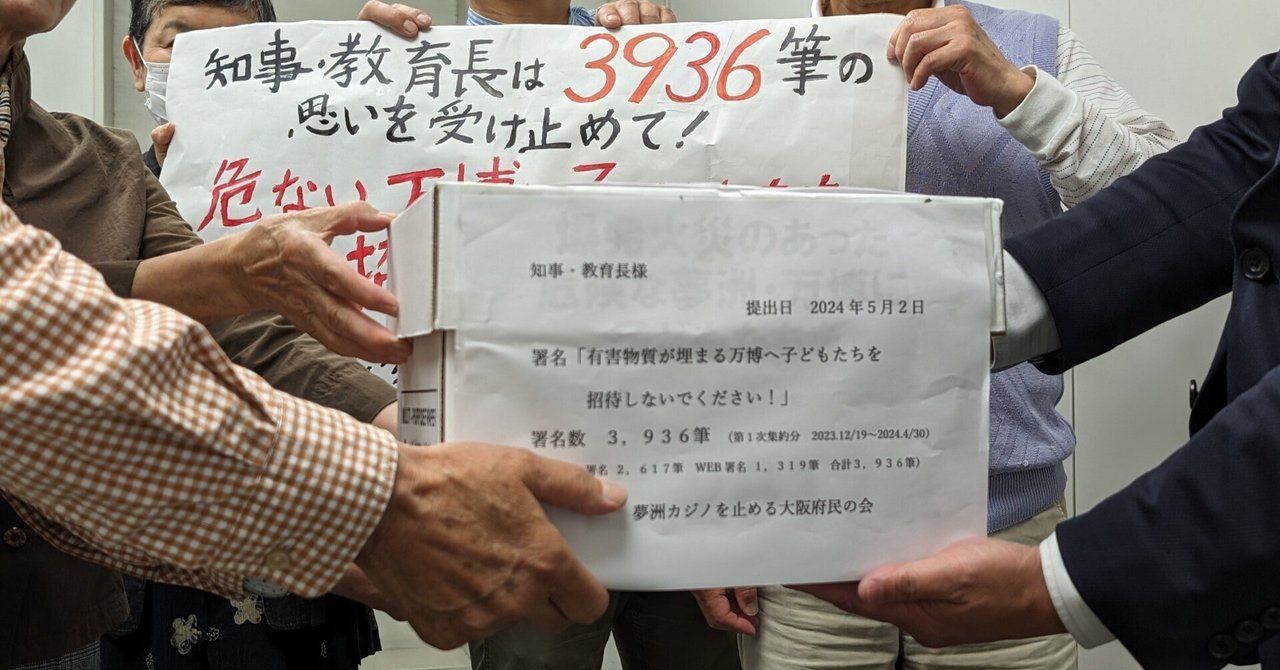 知事・教育長は3936筆の
思いを受け止めて！
危ない万博へ子
招
爆発火災のあった
危険な夢洲・万博に
知事・教育長様
提出日 2024年5月2日
署名「有害物質が埋まる万博へ子どもたちを
招待しないでください！」
署名数 3,936筆 (第1次集約分 2023.12/19～2024.4/30)
署名 2,617筆 WEB署名 1,319筆 合計3,936筆)
夢洲カジノを止める大阪府民の会